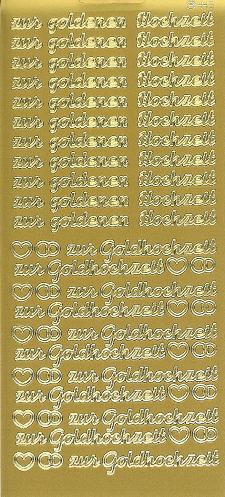 zur goldenen Hochzeit
zur goldenen Hochzeit
zur goldenen Hochzeit
zur goldenen Hochzeit
zur goldenen Hochzeit
zur goldenen Hochzeit
zur goldenen Hochzeit
zur goldenen Hochzeit
zur goldenen Hochzeit
zur goldenen Hochzeit
zur goldenen Hochzeit
zur Goldhochzeit
zur Goldhochzeit
zur Goldhochzeit
zur Goldhochzeit
zur Goldhochzeit
zur Goldhochzeit
zur Goldhochzeit
zur Goldhochzeit
zur Goldhochzeit
zur Goldhochzeit
zur Goldhochzeit